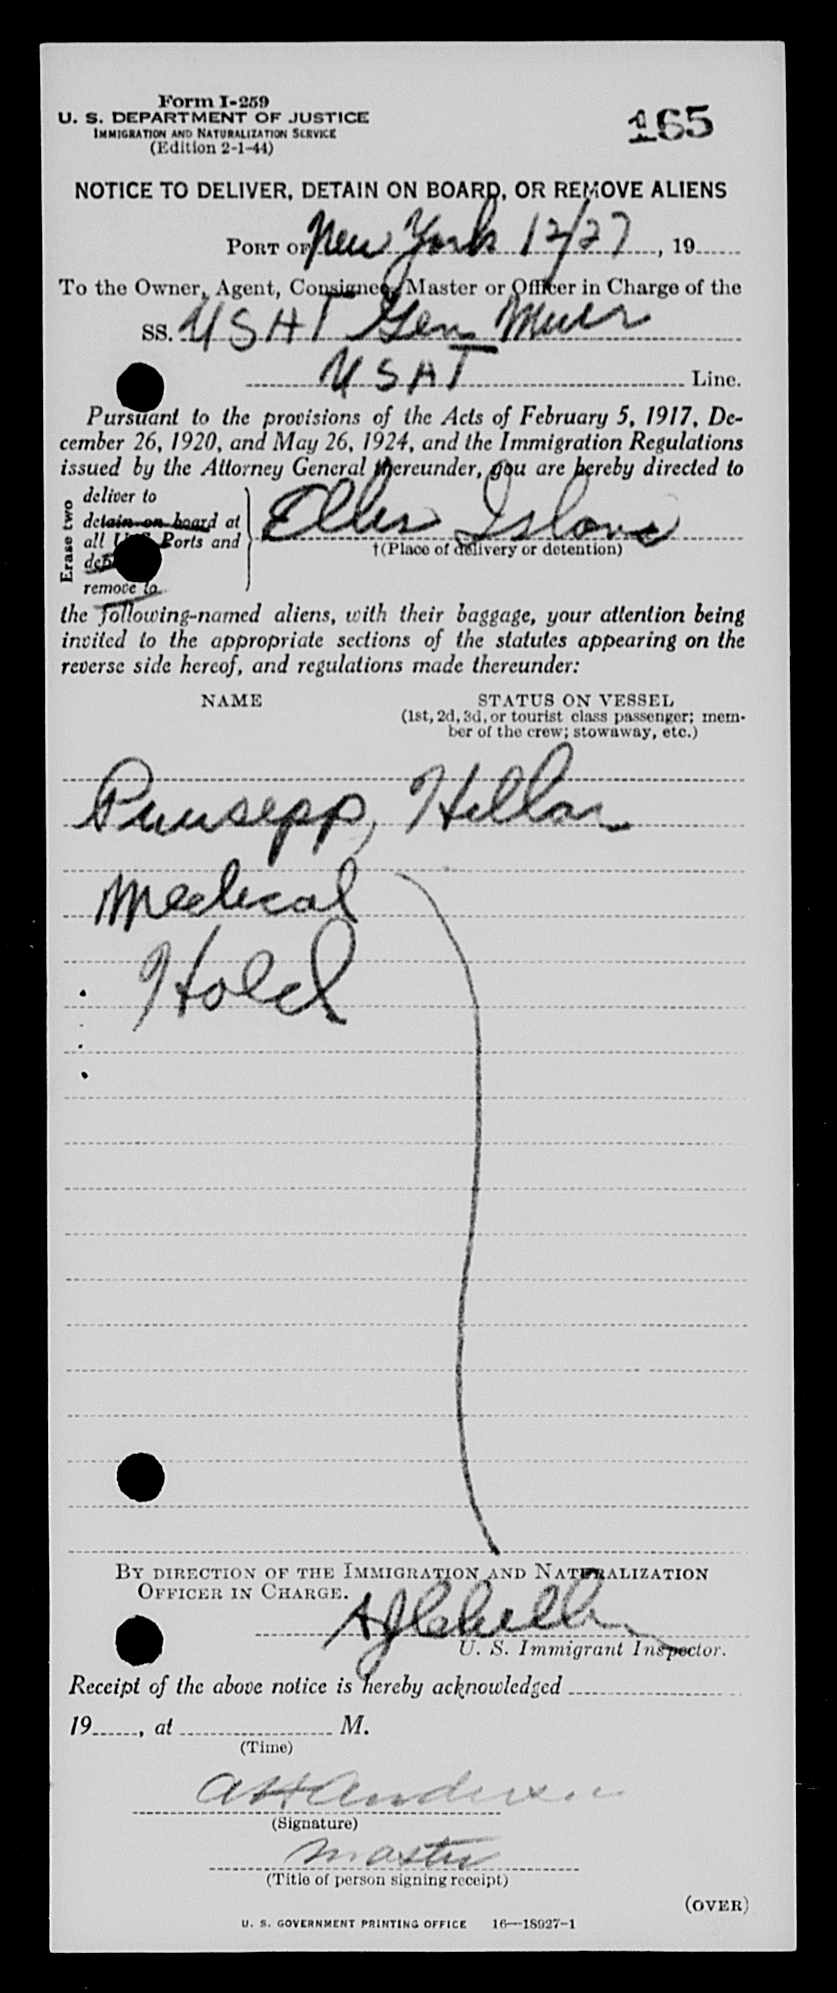 Form I-259
U. S. DEPARTMENT OF JUSTICE
IMMIGRATION AND NATURALIZATION SERVICE
(Edition 2-1-44)
165
NOTICE TO DELIVER, DETAIN ON BOARD, OR REMOVE ALIENS
PORT OF New York 12/27, 19
To the Owner, Agent, Consignee, Master or Officer in Charge of the
SS. USAT Gen Muir
USAT Line.
Pursuant to the provisions of the Acts of February 5, 1917, De-
cember 26, 1920, and May 26, 1924, and the Immigration Regulations
issued by the Attorney General thereunder, you are hereby directed to
Erase two
deliver to
detain on board at
all U.S. Ports and
remove to
Ellis Island
†(Place of delivery or detention)
the following-named aliens, with their baggage, your attention being
invited to the appropriate sections of the statutes appearing on the
reverse side hereof, and regulations made thereunder:
NAME STATUS ON VESSEL
(1st, 2d, 3d, or tourist class passenger; mem-
ber of the crew; stowaway, etc.)
Puusepp, Hillar
Medical
Hold
BY DIRECTION OF THE IMMIGRATION AND NATURALIZATION
OFFICER IN CHARGE.
U. S. Immigrant Inspector.
Receipt of the above notice is hereby acknowledged
19, at M.
(Time)
A H Anderson
(Signature)
Master
(Title of person signing receipt)
(OVER)
U. S. GOVERNMENT PRINTING OFFICE 16—18927-1